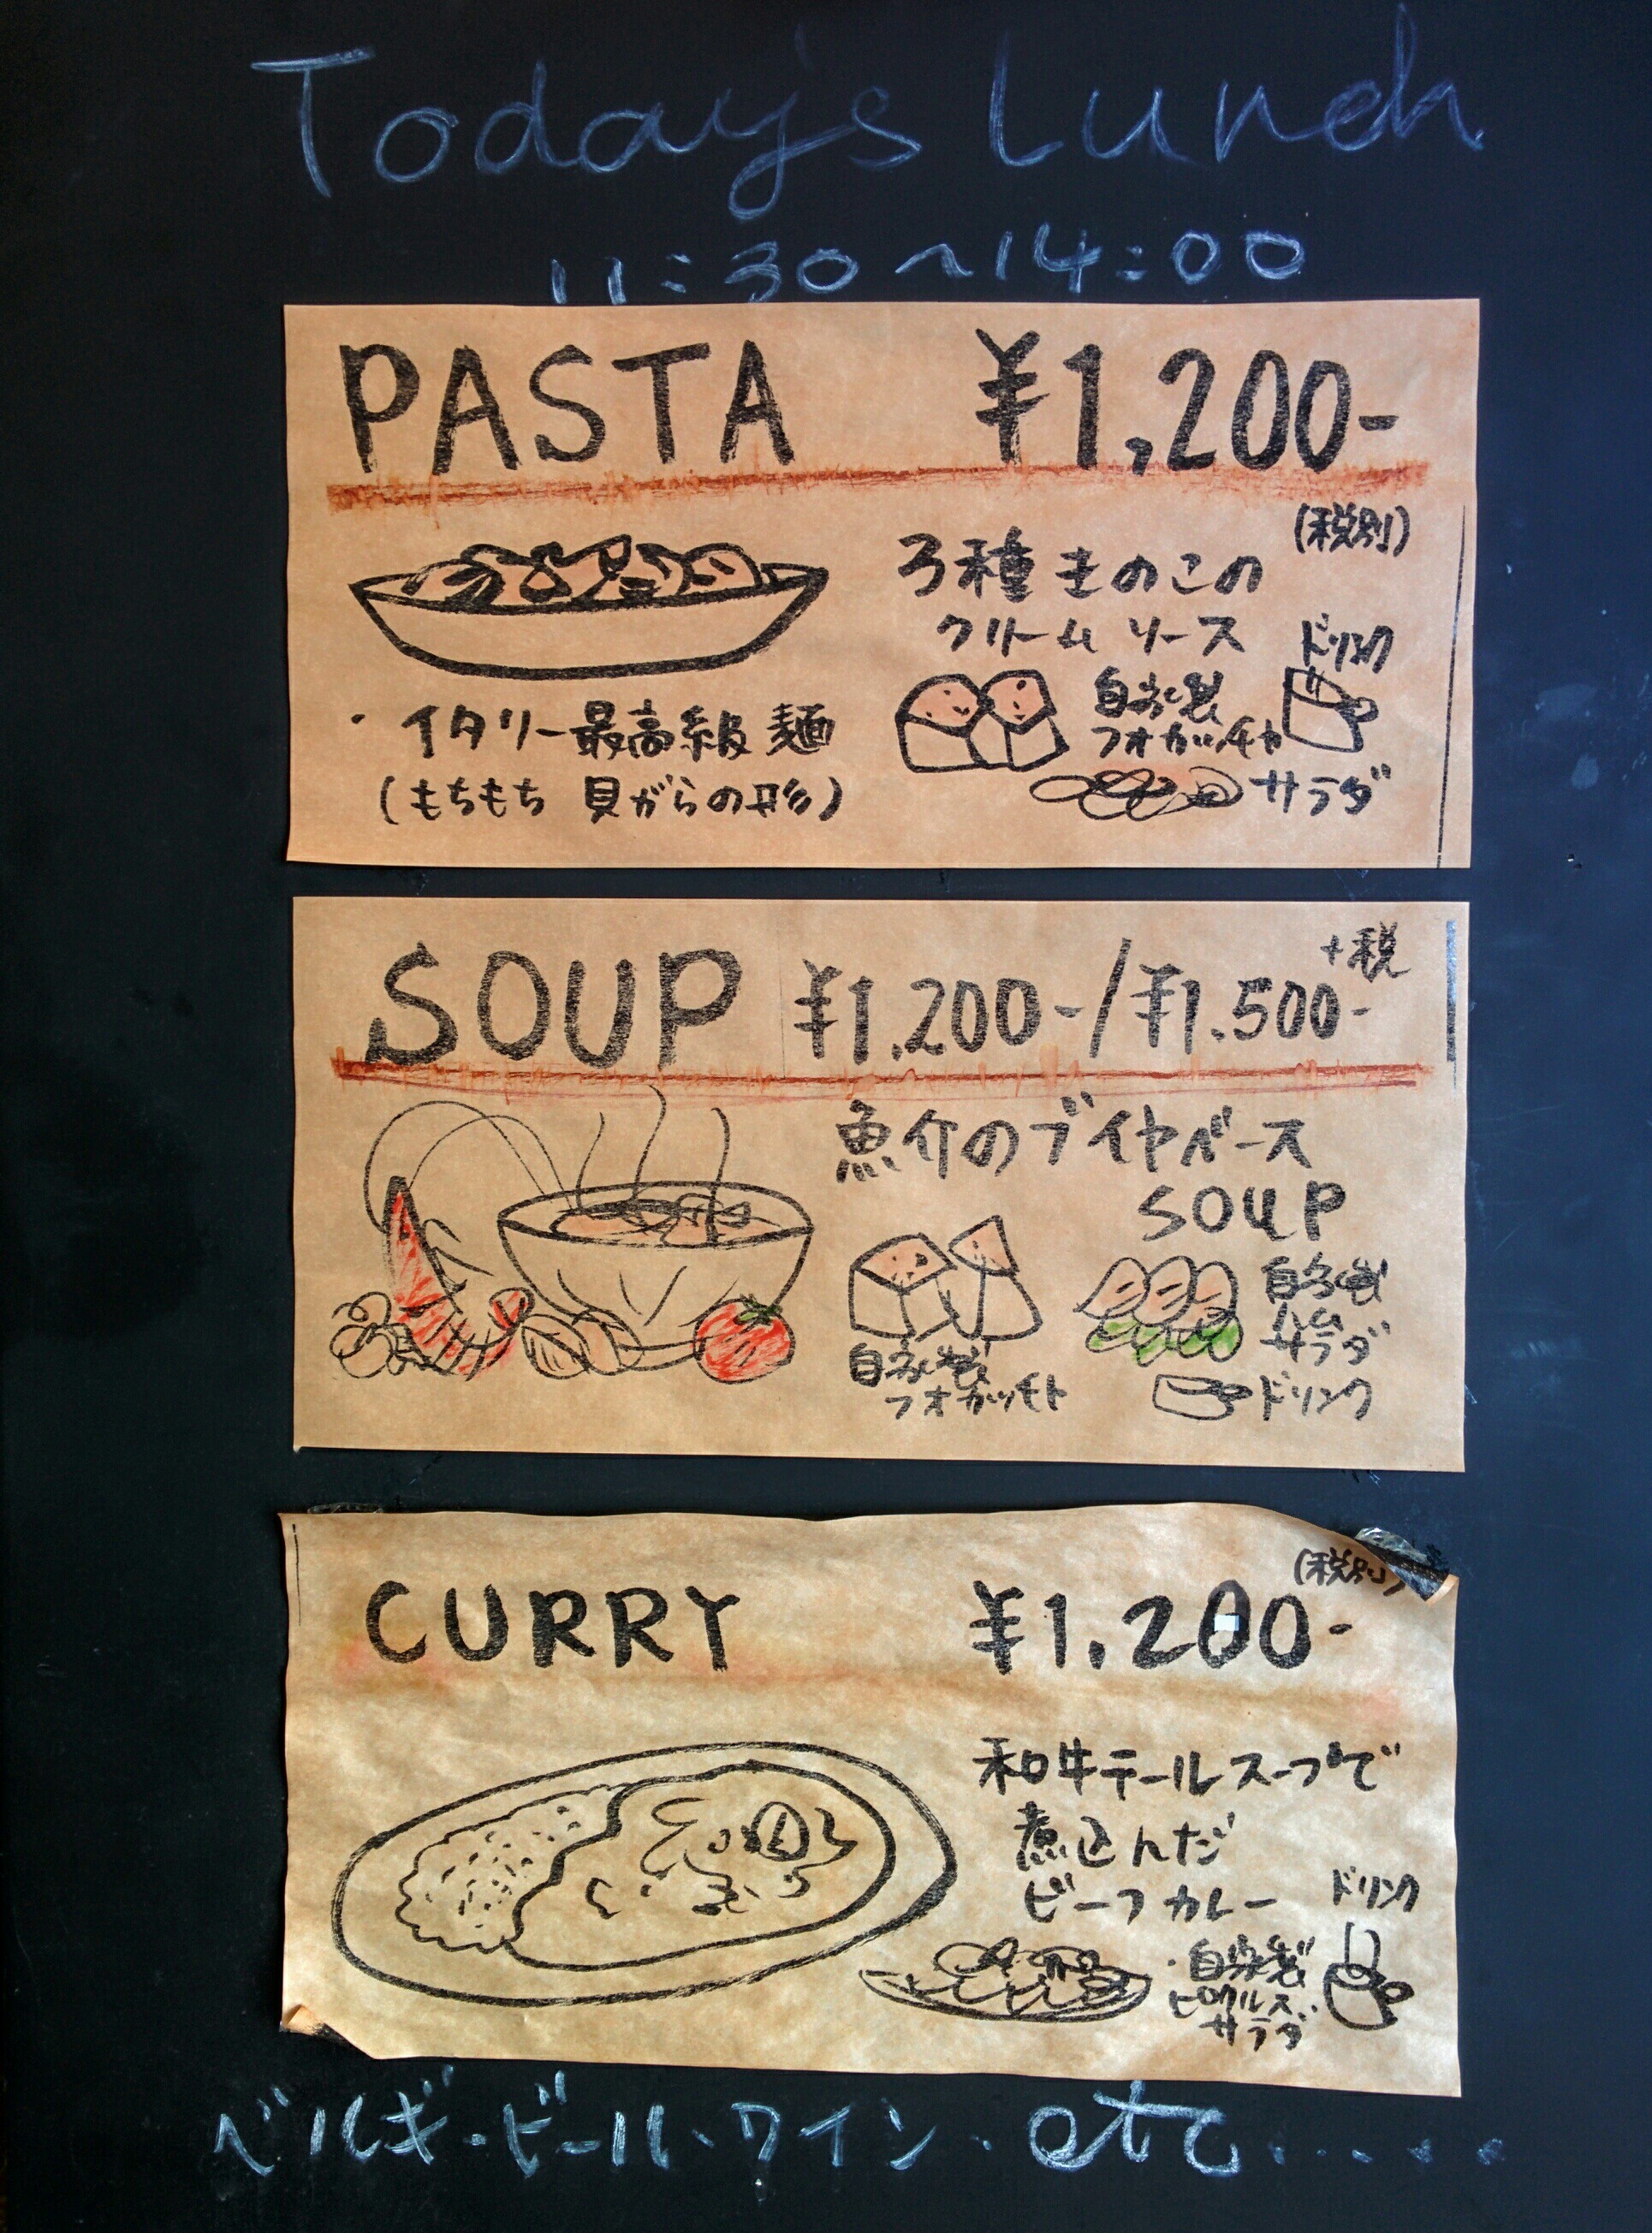 Today's Lunch
11:30～14:00
PASTA ¥1,200-
(税別)
3種きのこの
クリームソース
ドリンク
自家製
フォカッチャ
サラダ
・イタリー最高級麺
(もちもち 貝がらの形)
SOUP ¥1.200-/¥1.500-
+税
魚介のブイヤベース
SOUP
自家製
フォカッチャ
自家製
ハム
サラダ
ドリンク
(税別)
CURRY ¥1.200-
和牛テールスープで
煮込んだ
ビーフカレー
ドリンク
・自家製
ピクルス
サラダ
ベルギービール、ワイン・etc.....